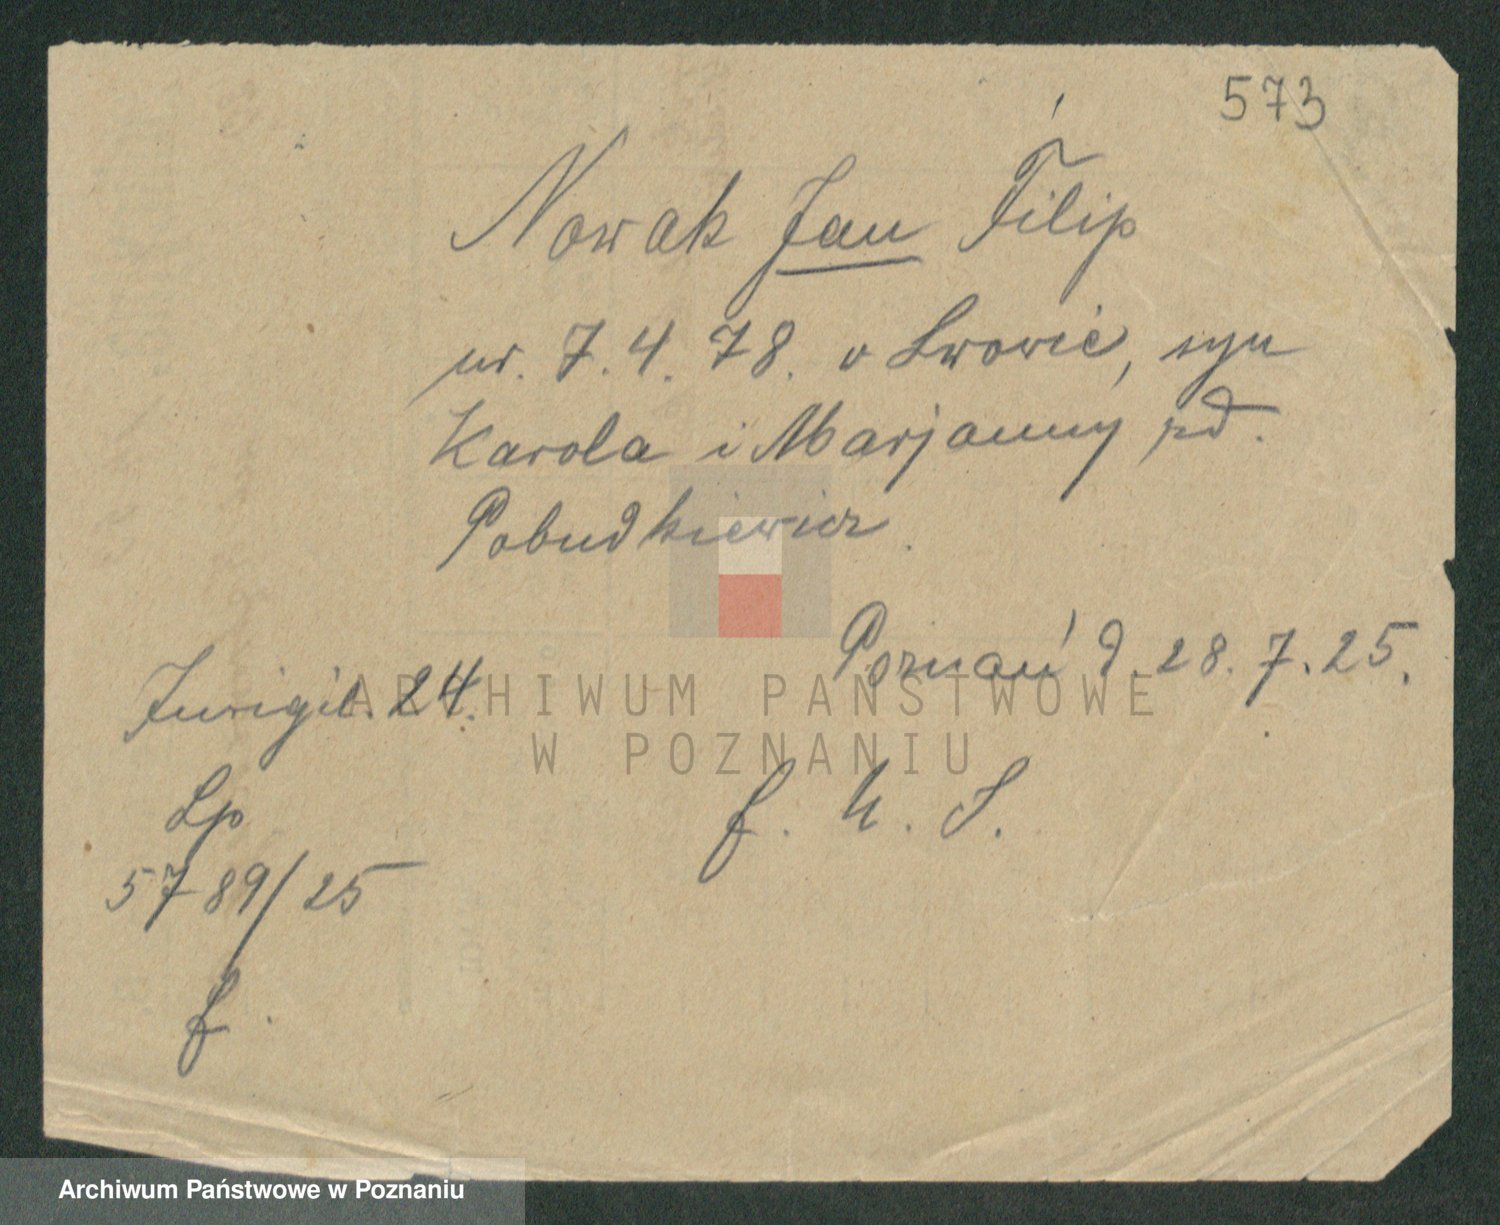 573
Nowak Jan Filip
ur. 7.4.78. w Lwowie, syn
Karola i Marjanny zd.
Pobudkiewicz.
Poznań d. 28.7.25.
24.
ARCHIWUM PAŃSTWOWE
W POZNANIU
Lp
5789/25
f.
Archiwum Państwowe w Poznaniu